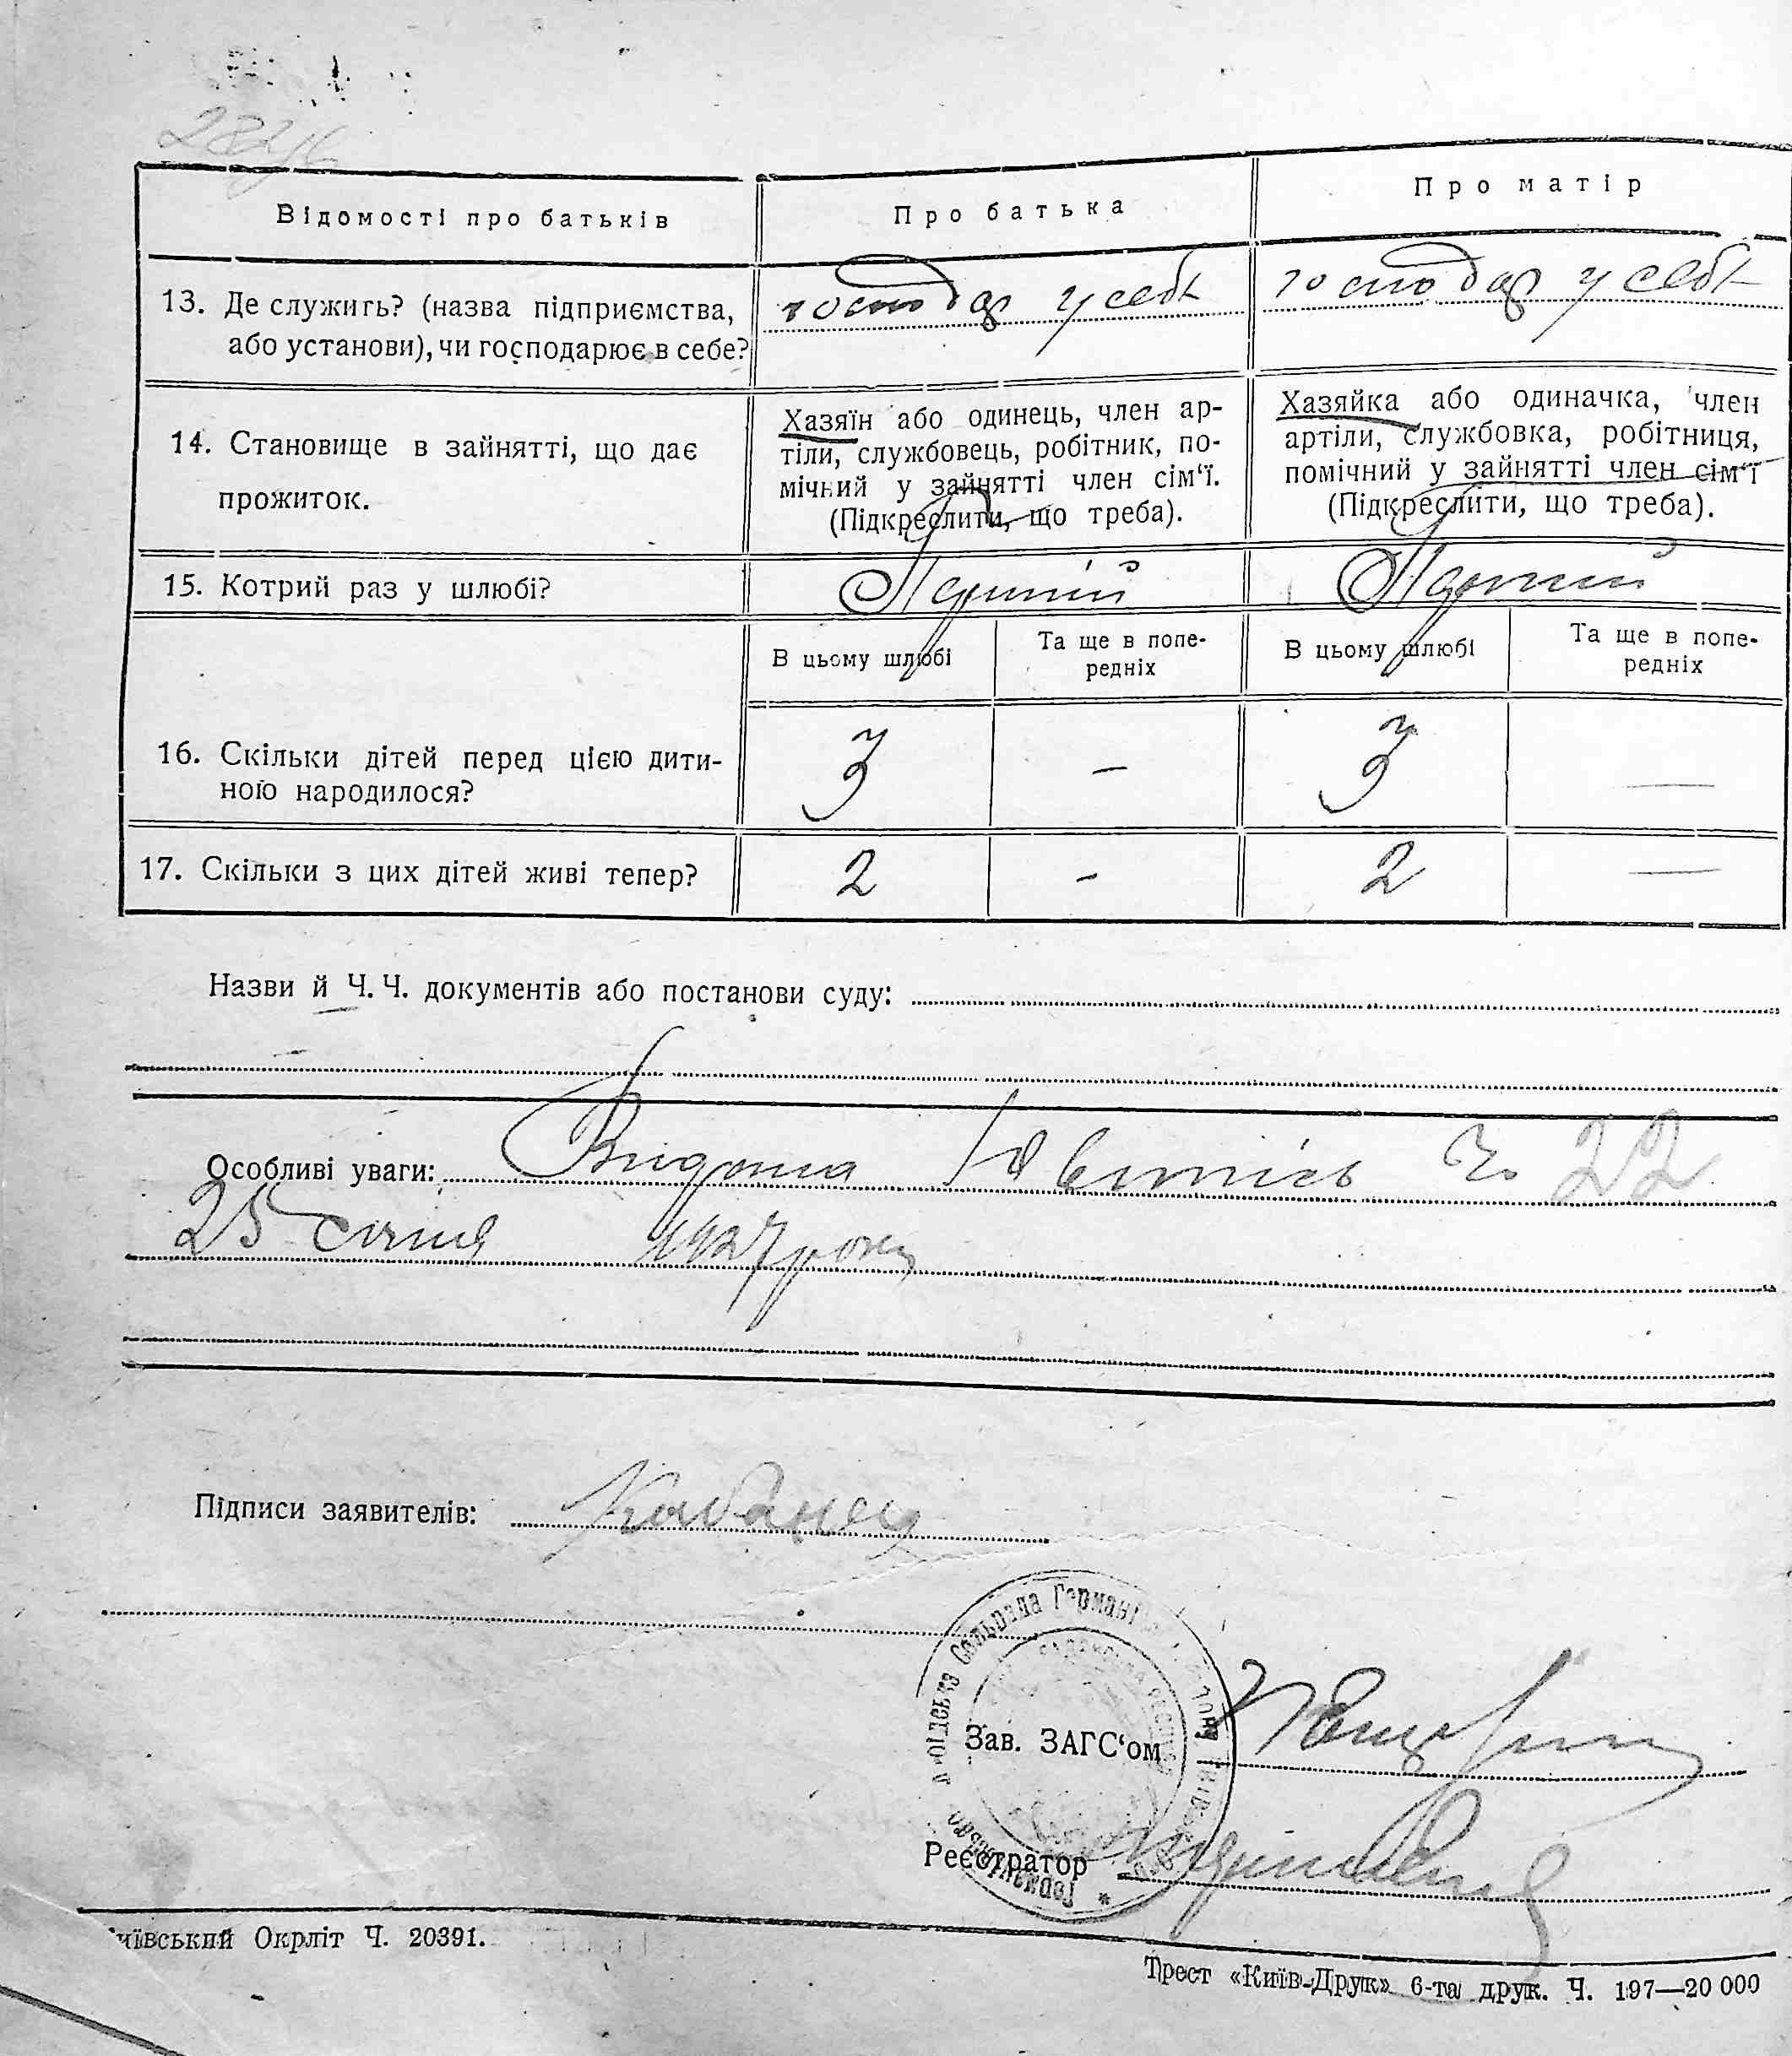 Відомості про батьків
Про батька
Про матір
13. Де служить? (назва підприємства,
або установи), чи господарює в себе?
господар у себе
господар у себе
14. Становище в зайнятті, що дає
прожиток.
Хазяїн або одинець, член ар-
тіли, службовець, робітник, по-
мічний у зайнятті член сім‘ї.
(Підкреслити, що треба).
Хазяйка або одиначка, член
артіли, службовка, робітниця,
помічний у зайнятті член сім‘ї
(Підкреслити, що треба).
15. Котрий раз у шлюбі?
Перший
Перший
В цьому шлюбі
Та ще в попе-
редніх
В цьому шлюбі
Та ще в попе-
редніх
16. Скільки дітей перед цією дити-
ною народилося?
3
–
3
—
17. Скільки з цих дітей живі тепер?
2
-
2
—
Назви й Ч. Ч. документів або постанови суду:
Особливі уваги: Видана Ч. 22
25 січня 1927 року
Підписи заявителів: Кабанец
Сольрада
Зав. ЗАГС‘ом
Реєстратор
Київський Окрліт Ч. 20391.
Трест «Київ-Друк» 6-та друк. Ч. 197—20 000